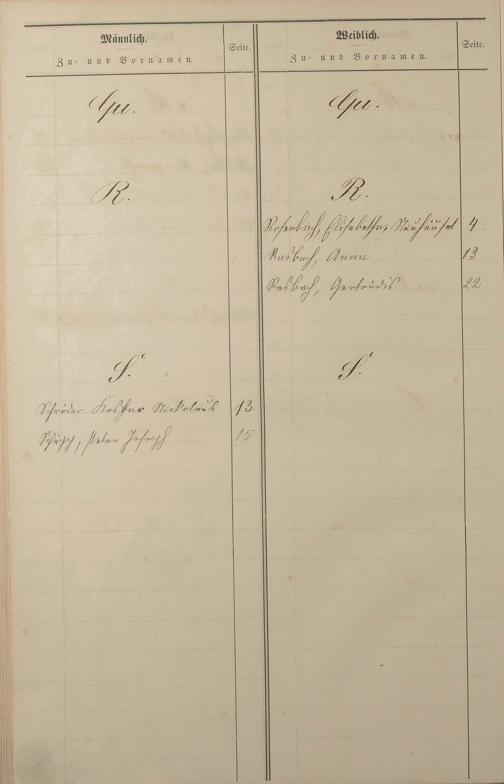 Männlich.
Zu- und Vornamen.
Seite.
Qu.
R.
S.
Schröder Kaspar Nickolaus 13.
Peter Joseph 15
Weiblich.
Zu- und Vornamen.
Seite.
Qu.
R.
Rosenbach, Elisabetha, Neuhäusel 4
Rasbach, Anna 13
Rasbach, Gertrudis 22
S.